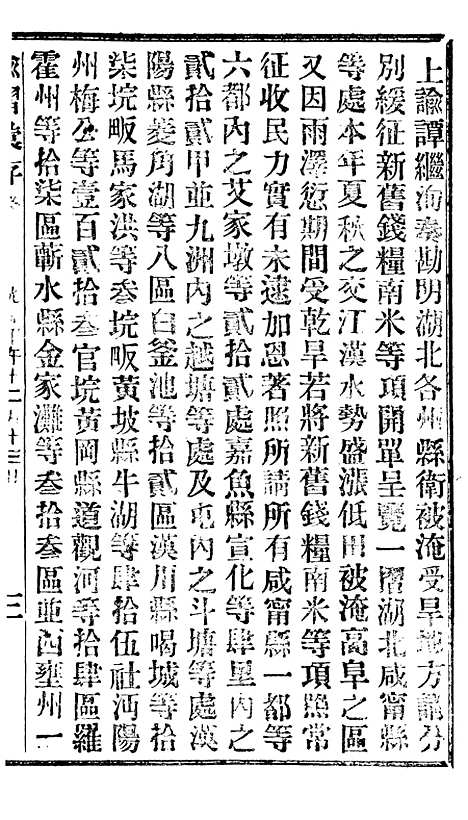 上諭譚繼洵奏勘明湖北各州縣衛被淹受旱地方請分
別緩征新舊錢糧南米等項開單呈覽一摺湖北咸甯縣
等處本年夏秋之交江漢水勢盛漲低田被淹高阜之區
又因雨澤愆期間受乾旱若將新舊錢糧南米等項照常
征收民力實有未逮加恩著照所請所有咸甯縣一都等
六都內之艾家墩等貳拾貳處嘉魚縣宣化等肆里內之
貳拾貳甲並九洲內之越塘等處及屯內之斗塘等處漢
陽縣菱角湖等八區白釜池等拾貳區漢川縣喝城等拾
柒垸畈馬家洪等叁垸畈黃坡縣牛湖等肆拾伍社沔陽
州梅公等壹百貳拾叁官垸黃岡縣道觀河等拾肆區羅
霍州等拾柒區蘄水縣金家灘等叁拾叁區並西壅州一
諭摺彙存
十二月十三日
三